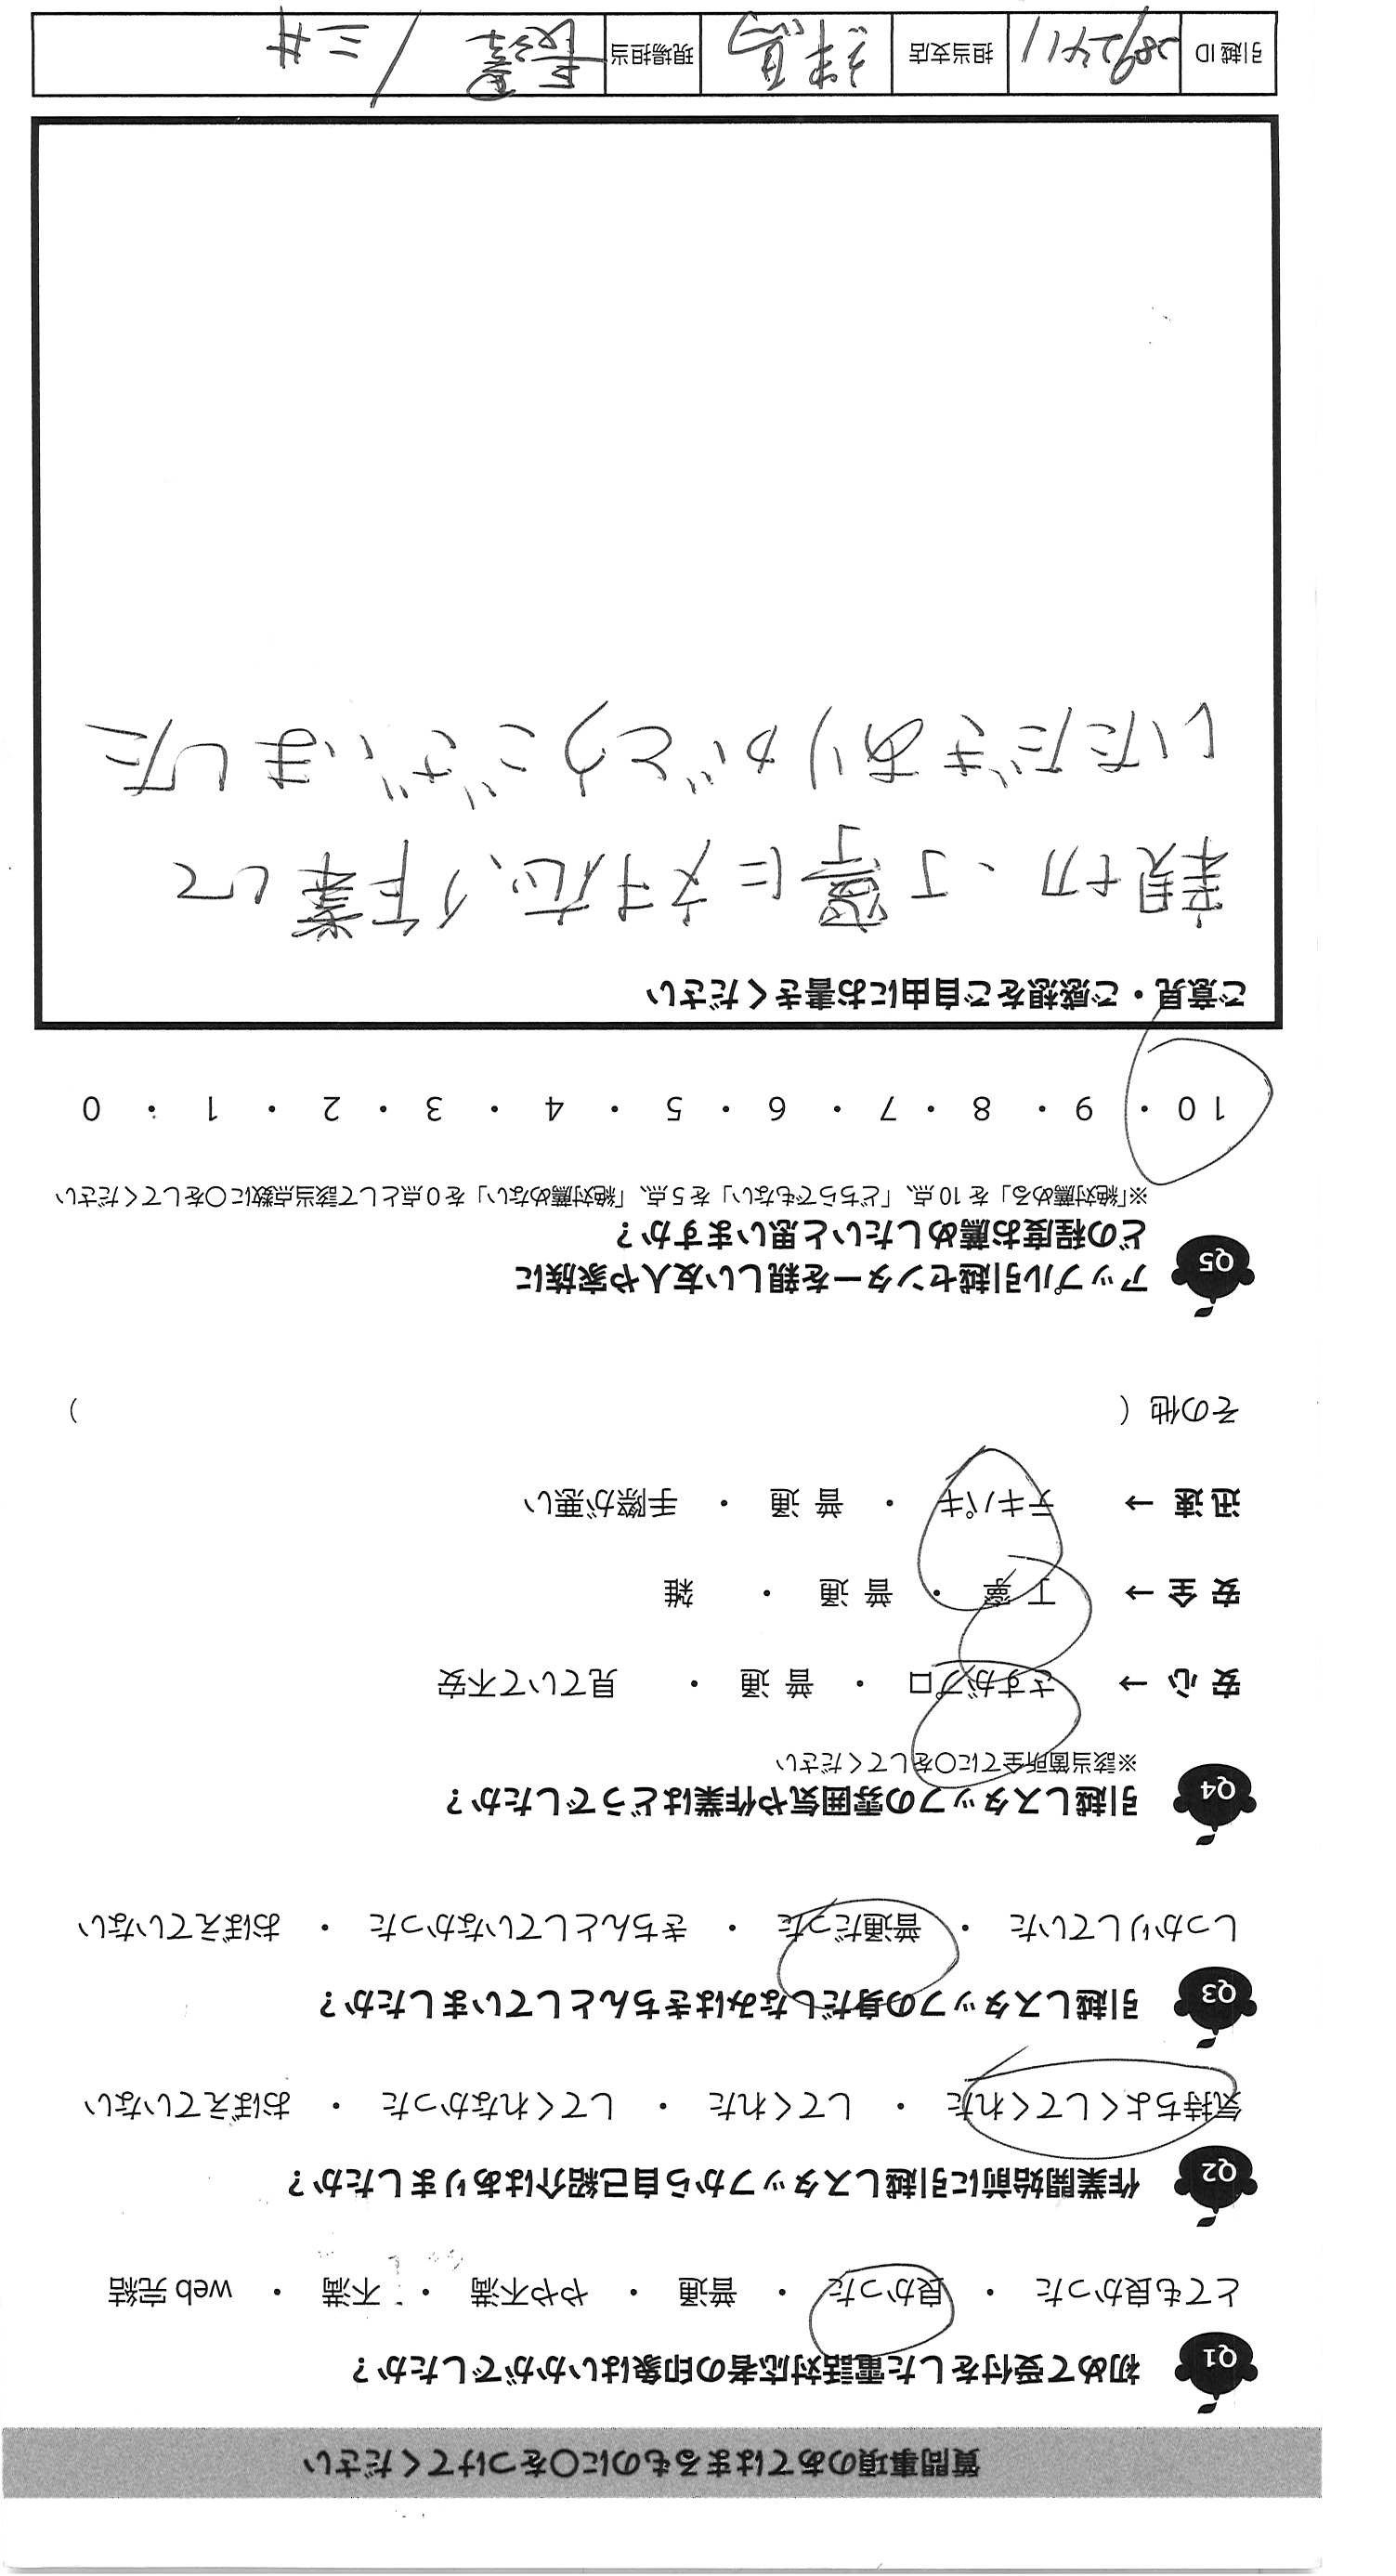 質問事項のあてはまるものに〇をつけてください
Q1 初めて受付をした電話対応者の印象はいかがでしたか？
とても良かった ・ 良かった ・ 普通 ・ やや不満 ・ 不満 ・ web 完結
Q2 作業開始前に引越しスタッフから自己紹介はありましたか？
気持ちよくしてくれた ・ してくれた ・ してくれなかった ・ おぼえていない
Q3 引越しスタッフの身だしなみはきちんとしていましたか？
しっかりしていた ・ 普通だった ・ きちんとしていなかった ・ おぼえていない
Q4 引越しスタッフの雰囲気や作業はどうでしたか？
※該当箇所全てに〇をしてください
安 心 → さすがプロ ・ 普 通 ・ 見ていて不安
安 全 → 丁 寧 ・ 普 通 ・ 雑
迅 速 → テキパキ ・ 普 通 ・ 手際が悪い
その他 （ ）
Q5 アップル引越センターを親しい友人や家族に
どの程度お薦めしたいと思いますか？
※「絶対薦める」を 10 点、「どちらでもない」を 5 点、「絶対薦めない」を 0 点として該当点数に〇をしてください
10 ・ 9 ・ 8 ・ 7 ・ 6 ・ 5 ・ 4 ・ 3 ・ 2 ・ 1 ・ 0
ご意見・ご感想をご自由にお書きください
親切、丁寧に対応、作業して
いただきありがとうございました
引越 ID 担当支店 練馬 現場担当 / 三井